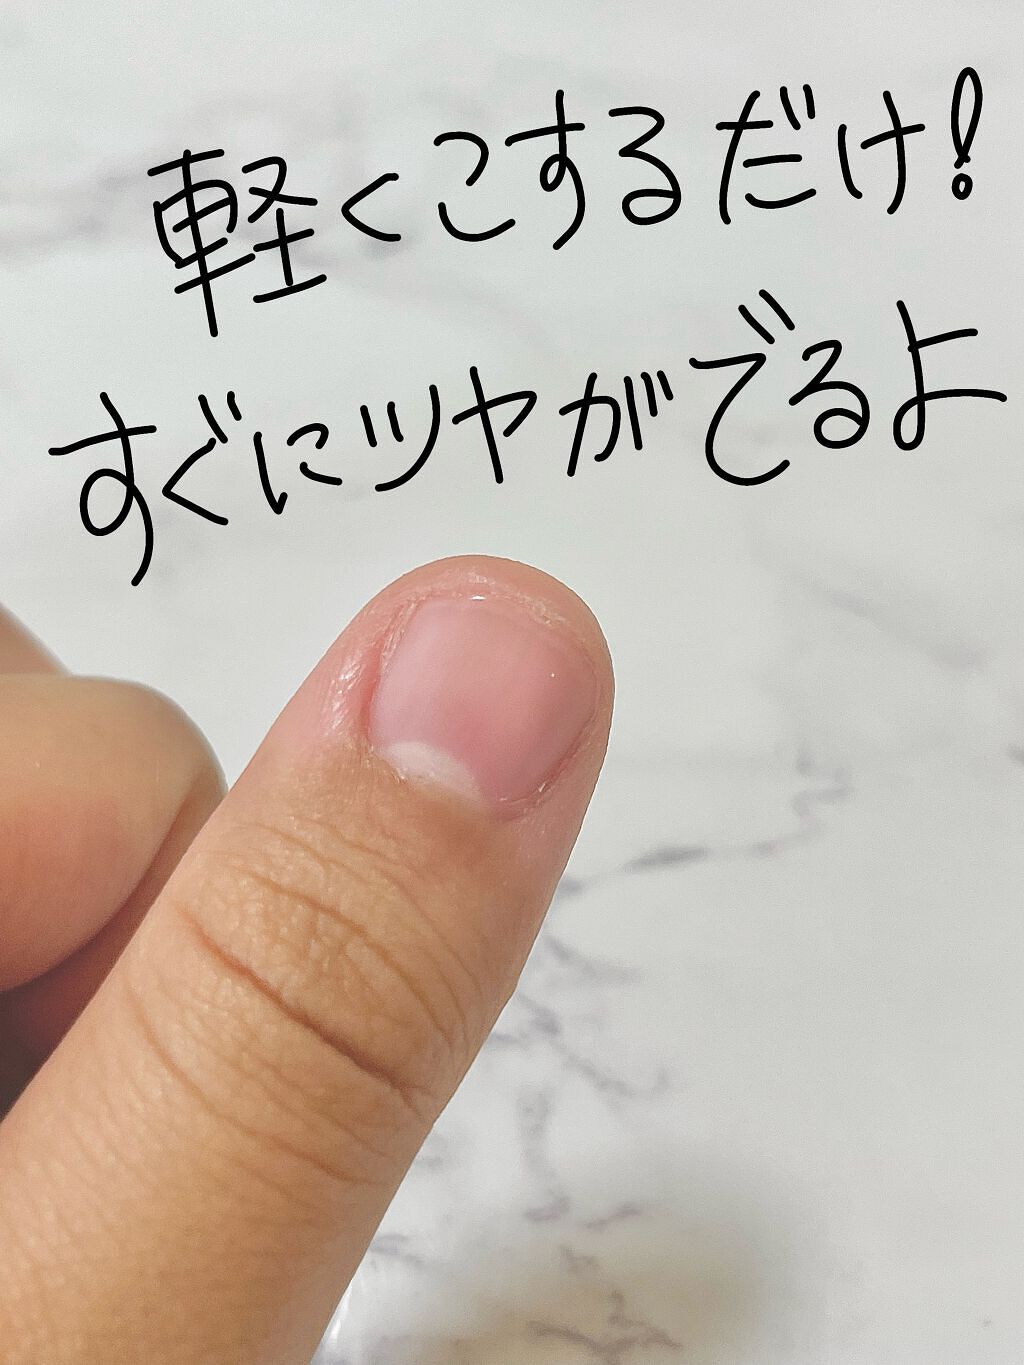 軽くこするだけ!
すぐにツヤがでるよ